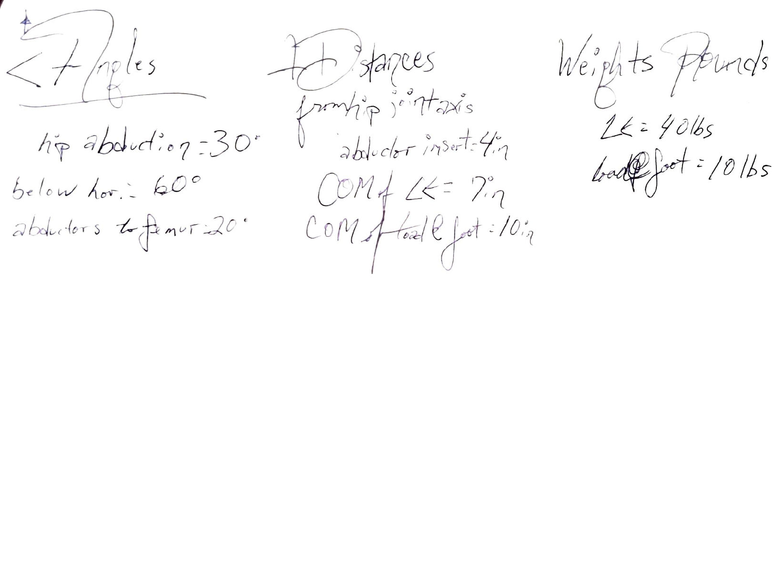 < Angles
hip abduction = 30°
below hor. = 60°
abductors to femur = 20°
Distances
from hip joint axis
abductor insert = 4in
COM of LE = 7in
COM of load @ foot = 10in
Weights Pounds
LE = 40lbs
load @ foot = 10lbs